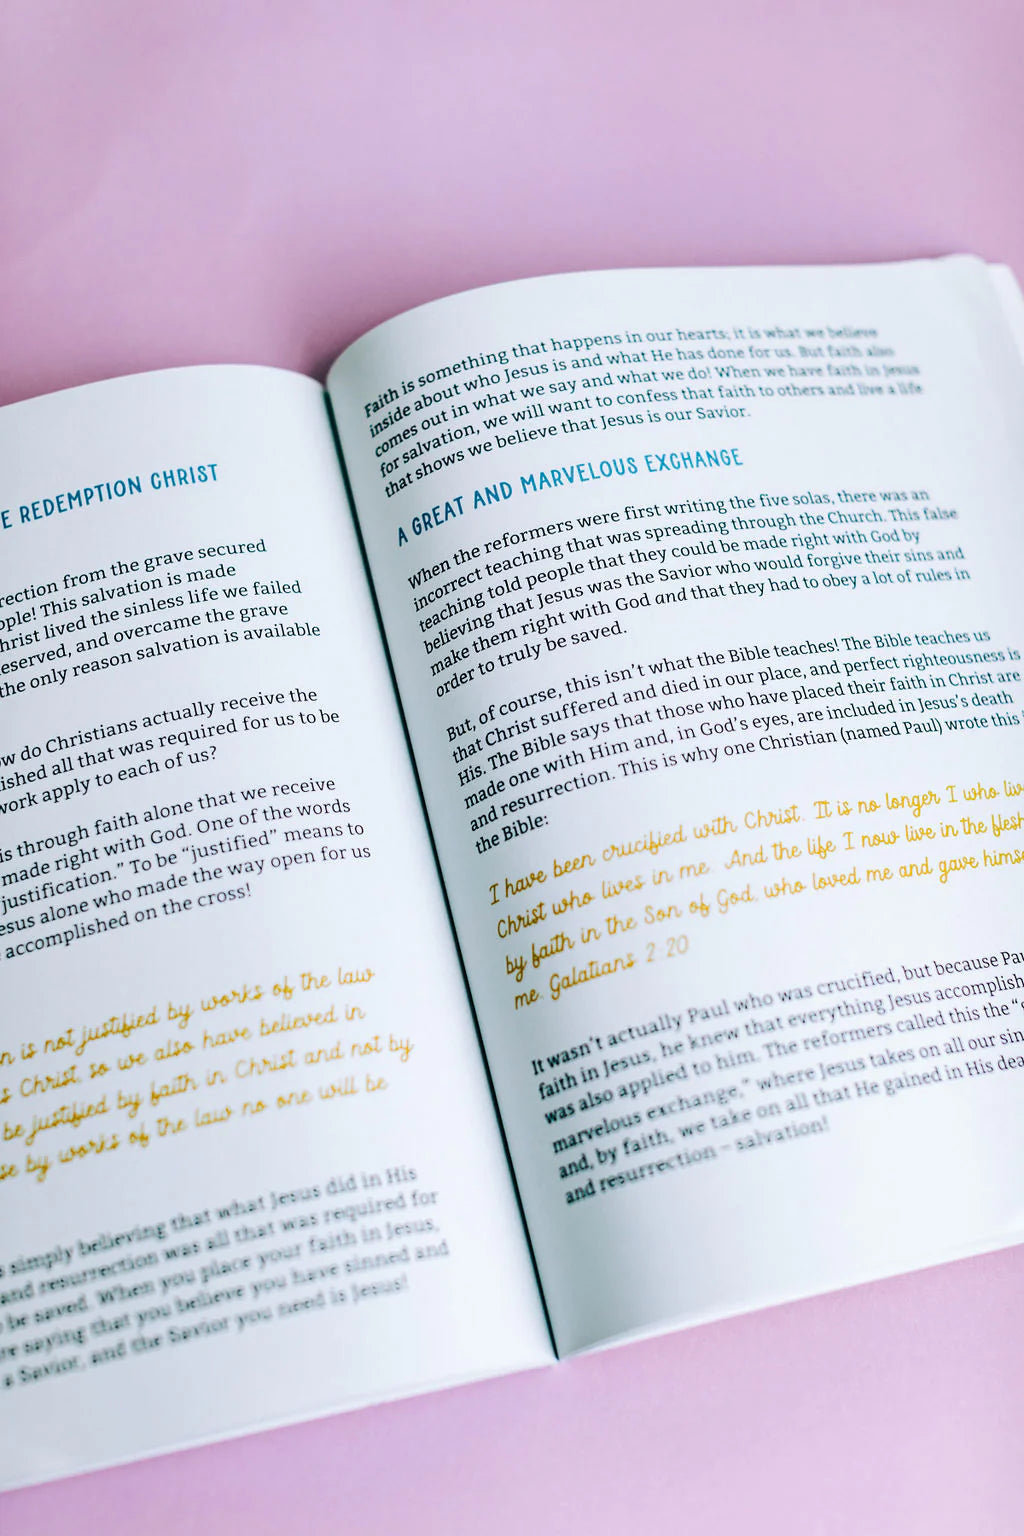 E REDEMPTION CHRIST
rection from the grave secured
ople! This salvation is made
hrist lived the sinless life we failed
eserved, and overcame the grave
the only reason salvation is available
ow do Christians actually receive the
ished all that was required for us to be
work apply to each of us?
is through faith alone that we receive
made right with God. One of the words
justification.” To be “justified” means to
esus alone who made the way open for us
accomplished on the cross!
n is not justified by works of the law
s Christ, so we also have believed in
be justified by faith in Christ and not by
se by works of the law no one will be
simply believing that what Jesus did in His
and resurrection was all that was required for
be saved. When you place your faith in Jesus,
re saying that you believe you have sinned and
a Savior, and the Savior you need is Jesus!
Faith is something that happens in our hearts; it is what we believe
inside about who Jesus is and what He has done for us. But faith also
comes out in what we say and what we do! When we have faith in Jesus
for salvation, we will want to confess that faith to others and live a life
that shows we believe that Jesus is our Savior.
A GREAT AND MARVELOUS EXCHANGE
When the reformers were first writing the five solas, there was an
incorrect teaching that was spreading through the Church. This false
teaching told people that they could be made right with God by
believing that Jesus was the Savior who would forgive their sins and
make them right with God and that they had to obey a lot of rules in
order to truly be saved.
But, of course, this isn’t what the Bible teaches! The Bible teaches us
that Christ suffered and died in our place, and perfect righteousness is
His. The Bible says that those who have placed their faith in Christ are
made one with Him and, in God’s eyes, are included in Jesus’s death
and resurrection. This is why one Christian (named Paul) wrote this
the Bible:
I have been crucified with Christ. It is no longer I who liv
Christ who lives in me. And the life I now live in the flesh
by faith in the Son of God, who loved me and gave himse
me. Galatians 2:20
It wasn’t actually Paul who was crucified, but because Pau
faith in Jesus, he knew that everything Jesus accomplish
was also applied to him. The reformers called this the “
marvelous exchange,” where Jesus takes on all our sin
and, by faith, we take on all that He gained in His dea
and resurrection – salvation!